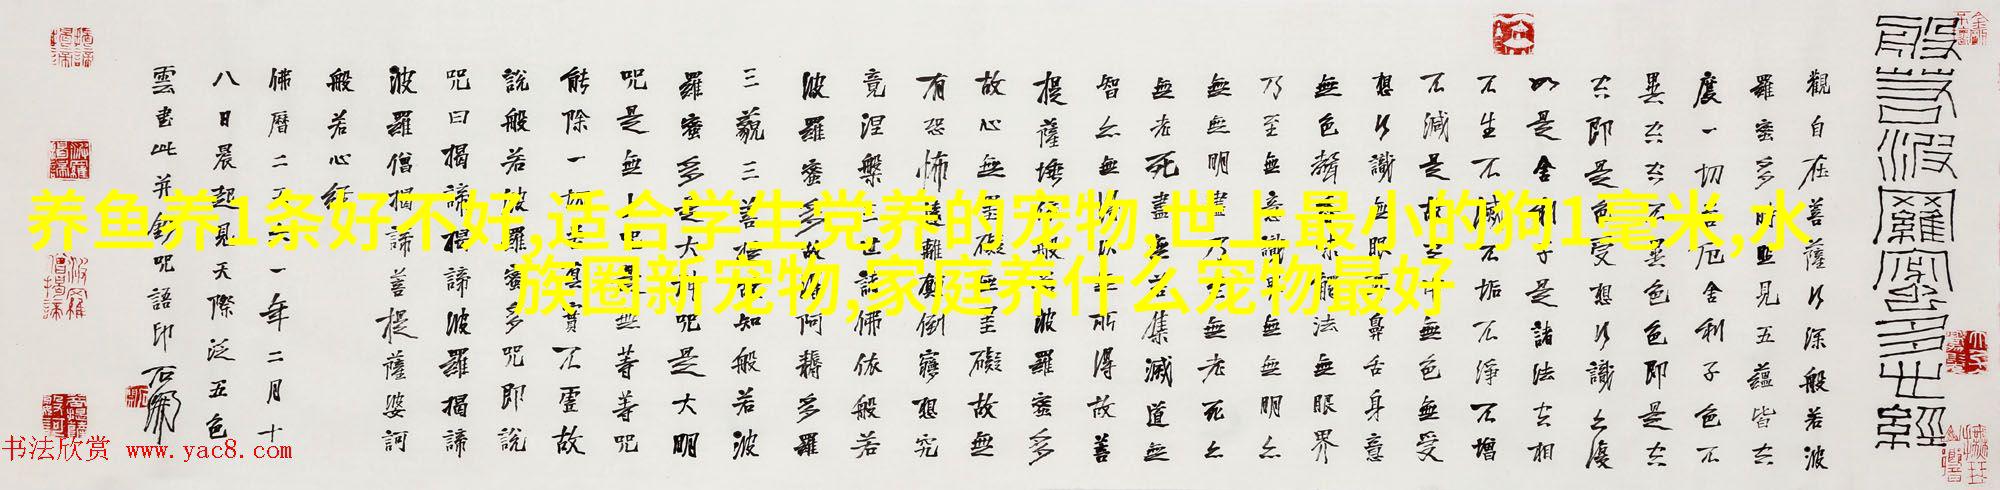 養鱼养1条好不好,适合学生党养的宠物,世上最小的狗1毫米,水
族圈新宠物,家庭养什么宠物最好
般若波羅蜜多心經
觀自在菩薩行深般若波
羅蜜多時照見五蘊皆空
度一切苦厄舍利子色不
異空空不異色色即是空
空即是色受想行識亦復
如是舍利子是諸法空相
不生不滅不垢不淨不增
不減是故空中無色無受
想行識無眼耳鼻舌身意
無色聲香味觸法無眼界
乃至無意識界無無明亦
無無明盡乃至無老死亦
無老死盡無苦集滅道無
智亦無得以無所得故菩
提薩埵依般若波羅蜜多
故心無罣礙無罣礙故無
有恐怖遠離顛倒夢想究
竟涅槃三世諸佛依般若
波羅蜜多故得阿耨多羅
三藐三菩提故知般若波
羅蜜多是大神咒是大明
咒是無上咒是無等等咒
能除一切苦真實不虛故
說般若波羅蜜多咒即說
咒曰揭諦揭諦波羅揭諦
波羅僧揭諦菩提薩婆訶
般若心經
佛曆二五六一年二月十
八日晨起見天際泛五色
雲書此并鈐咒語印
书法欣赏 www.yac8.com